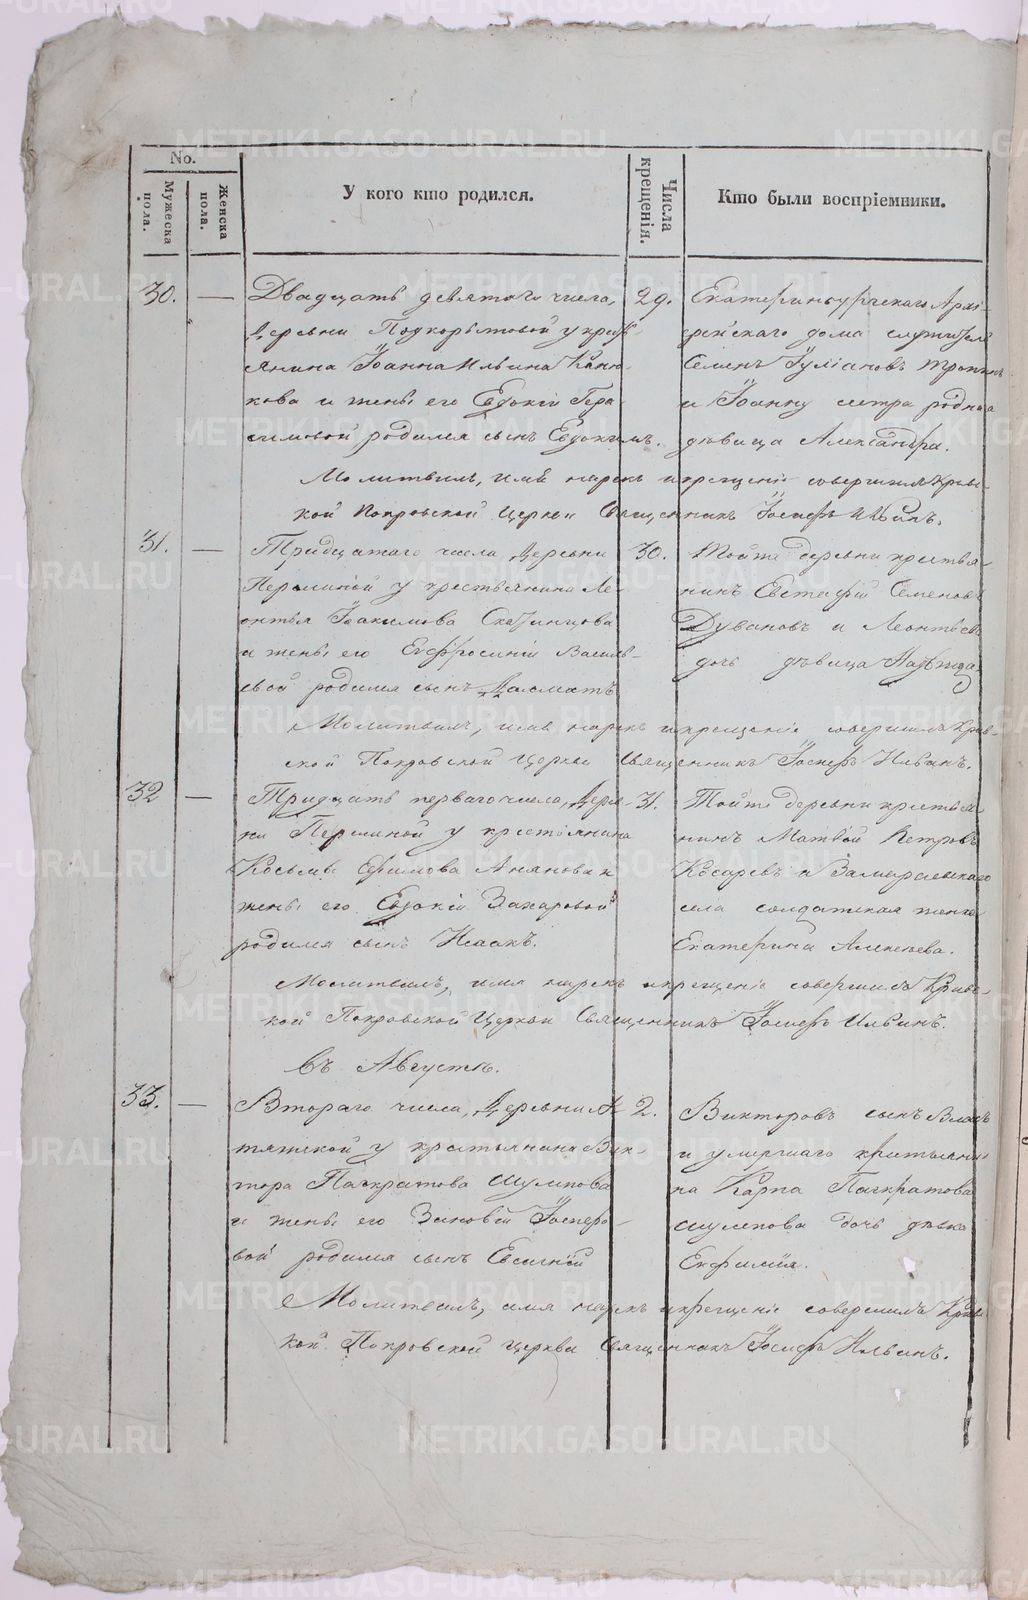 No.
Мужеска пола.
Женска пола.
У кого кто родился.
Числа крещенія.
Кто были воспріемники.
30. — Двадцать девятаго числа,
деревни Подкорытовой у крестьянина
Іоанна Ильина
и жены его Евдокіи Герасимовой
родился сынъ Евдокимъ.
29. Екатеринбургскаго Архіерейскаго
дома служителя
Семенъ Іуліановъ
и Іоанну сестра родная
дѣвица Александра.
Молитвилъ, имя нарекъ и крещеніе совершилъ
Покровской Церкви Священникъ Іосифъ Ильинъ.
31. — Тридцатаго числа деревни
Першиной у крестьянина Леонтья
Іоакимова
и жены его Евфросиніи Васильевой
родился сынъ Далматъ
30. Тойже деревни крестьянинъ
Евстафій Семеновъ
Дувановъ и Леонтьева
дочь дѣвица Надежда
Молитвилъ, имя нарекъ и крещеніе совершилъ
Покровской Церкви Священникъ Іосифъ Ильинъ.
32 — Тридцать перваго числа, деревни
Першиной у крестьянина
Косьмы Ефимова Ананьина
жены его Евдокіи Захаровой
родился сынъ Исаакъ.
31. Тойже деревни крестьянинъ
Матвѣй Петровъ
Косаревъ и
села солдатская женка
Екатерина Алексѣева.
Молитвилъ, имя нарекъ и крещеніе совершилъ
Покровской Церкви Священникъ Іосифъ Ильинъ.
Въ Августѣ.
33. — Втораго числа, деревни
у крестьянина Виктора
Панкратова Шулепова
и жены его Зиновіи Іосифовой
родился сынъ Евсигній
2. Викторовъ сынъ Власъ
и умершаго крестьянина
Карпа Панкратова
Шулепова дочь дѣвка
Евфимія.
Молитвилъ, имя нарекъ и крещеніе совершилъ
Покровской Церкви Священникъ Іосифъ Ильинъ.
METRIKI.GASO-URAL.RU